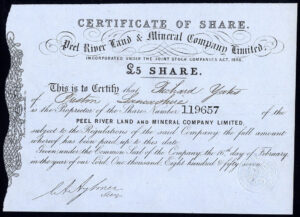 CERTIFICATE OF SHARE.
Peel River Land & Mineral Company Limited,
INCORPORATED UNDER THE JOINT STOCK COMPANIES ACT, 1856.
£5 SHARE.
This is to Certify that Richard Yates
of Preston Lancashire
is the Proprietor of the Share Number 119657 of the
PEEL RIVER LAND AND MINERAL COMPANY LIMITED,
subject to the Regulations of the said Company; the full amount
whereof has been paid up to this date
Given under the Common Seal of the Company, the 16th day of February,
in the year of our Lord One Thousand Eight Hundred & fifty seven